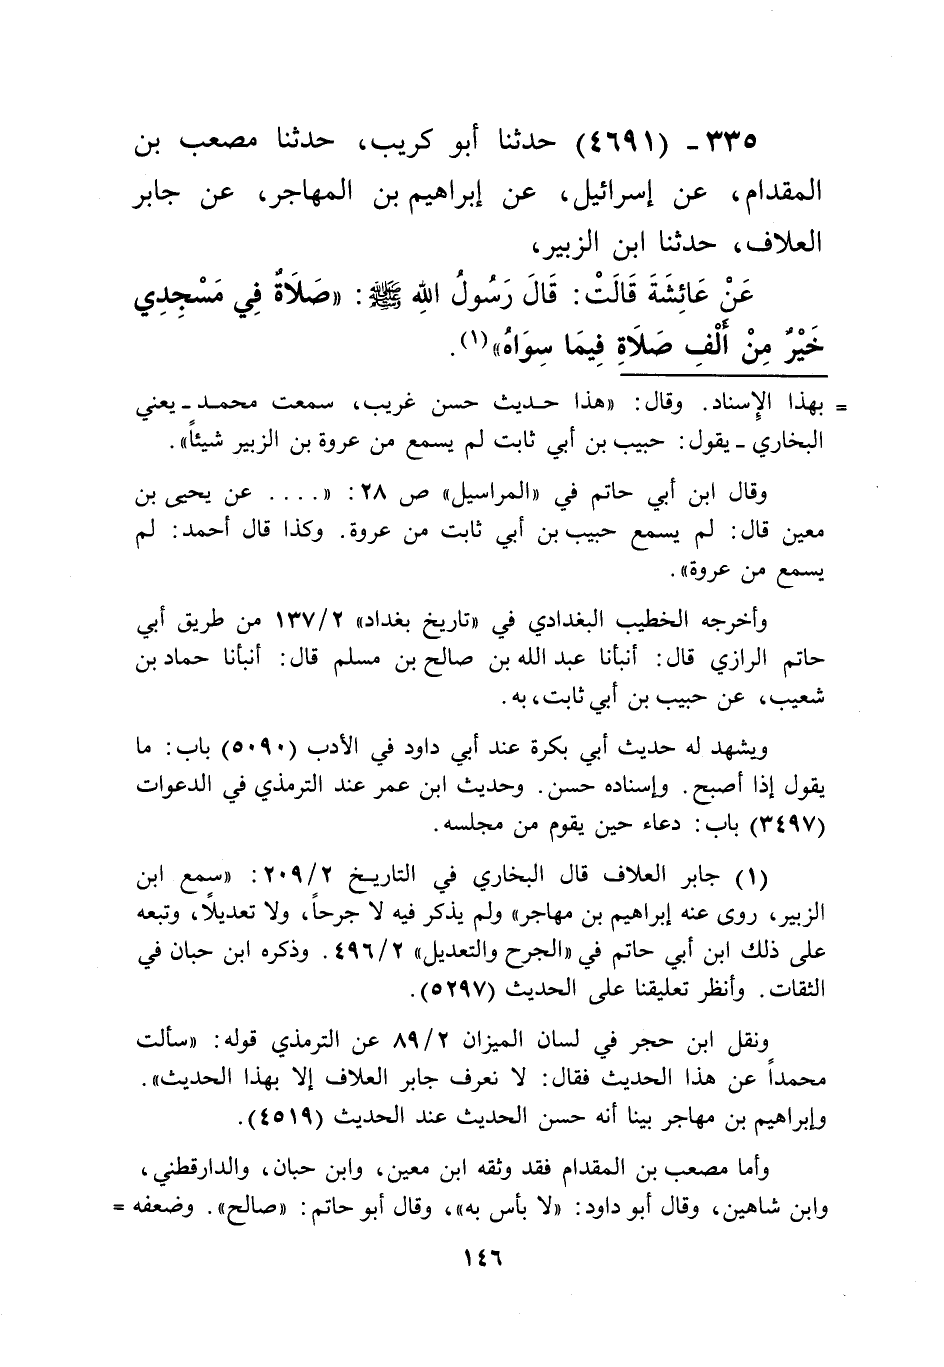 ٣٣٥ - (٤٦٩١) حدثنا أبو كريب، حدثنا مصعب بن
المقدام، عن إسرائيل، عن إبراهيم بن المهاجر، عن جابر
العلاف، حدثنا ابن الزبير،
عَنْ عَائِشَةَ قَالَتْ: قَالَ رَسُولُ اللهِ ﷺ: «صَلَاةٌ فِي مَسْجِدِي
خَيْرٌ مِنْ أَلْفِ صَلَاةٍ فِيمَا سِوَاهُ»(١).
= بهذا الإسناد. وقال: «هذا حديث حسن غريب، سمعت محمد - يعني
البخاري - يقول: حبيب بن أبي ثابت لم يسمع من عروة بن الزبير شيئاً».
وقال ابن أبي حاتم في «المراسيل» ص ٢٨: «.... عن يحيى بن
معين قال: لم يسمع حبيب بن أبي ثابت من عروة. وكذا قال أحمد: لم
يسمع من عروة».
وأخرجه الخطيب البغدادي في «تاريخ بغداد» ١٣٧/٢ من طريق أبي
حاتم الرازي قال: أنبأنا عبد الله بن صالح بن مسلم قال: أنبأنا حماد بن
شعيب، عن حبيب بن أبي ثابت، به.
ويشهد له حديث أبي بكرة عند أبي داود في الأدب (٥٠٩٠) باب: ما
يقول إذا أصبح. وإسناده حسن. وحديث ابن عمر عند الترمذي في الدعوات
(٣٤٩٧) باب: دعاء حين يقوم من مجلسه.
(١) جابر العلاف قال البخاري في التاريخ ٢٠٩/٢: «سمع ابن
الزبير، روى عنه إبراهيم بن مهاجر» ولم يذكر فيه لا جرحاً، ولا تعديلاً، وتبعه
على ذلك ابن أبي حاتم في «الجرح والتعديل» ٤٩٦/٢. وذكره ابن حبان في
الثقات. وأنظر تعليقنا على الحديث (٥٢٩٧).
ونقل ابن حجر في لسان الميزان ٨٩/٢ عن الترمذي قوله: «سألت
محمداً عن هذا الحديث فقال: لا نعرف جابر العلاف إلا بهذا الحديث».
وإبراهيم بن مهاجر بينا أنه حسن الحديث عند الحديث (٤٥١٩).
وأما مصعب بن المقدام فقد وثقه ابن معين، وابن حبان، والدارقطني،
وابن شاهين، وقال أبو داود: «لا بأس به»، وقال أبو حاتم: «صالح». وضعفه =
١٤٦